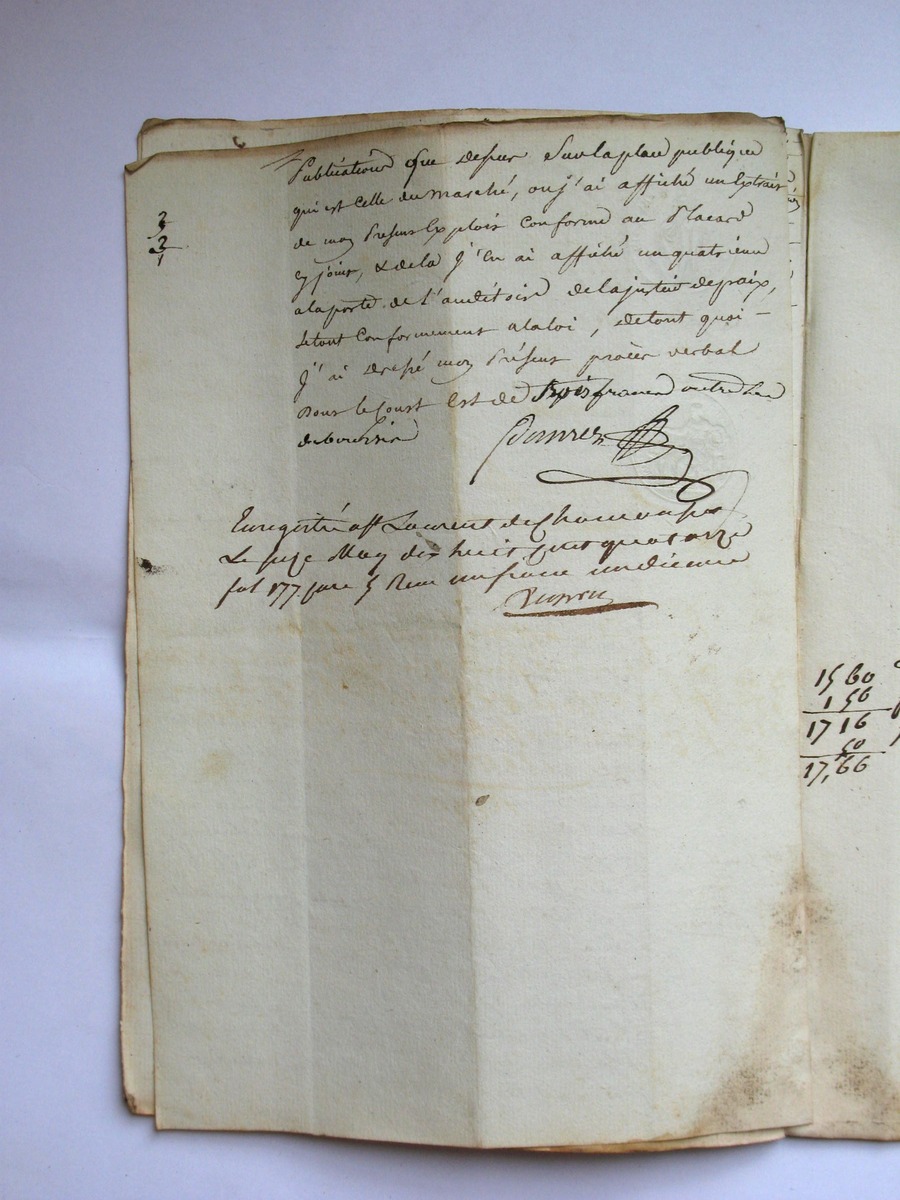 3
2
1
Publication que dessus sur la place publique
qui est celle du marché, ou j'ai affiché un Extrait
de mon Présent Exploit conforme au Placard
cy joint, & de la j'en ai affiché un quatrieme
a la porte de l'auditoire de la justice de paix,
le tout conformement a la loi, de tout quoi –
j'ai dressé mon Présent procès verbal
dont le Coust est de trois francs outre les
debourses
Enregistré a St Laurent de Chamousset
Le seize May dix huit cent quatorze
fol 177 case 5 Reçu un franc un décime
15 60
1 56
17 16
50
17,66